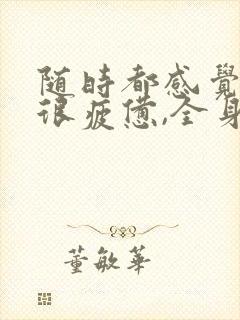 随時都感覺
很疲憊,全身
董敏華